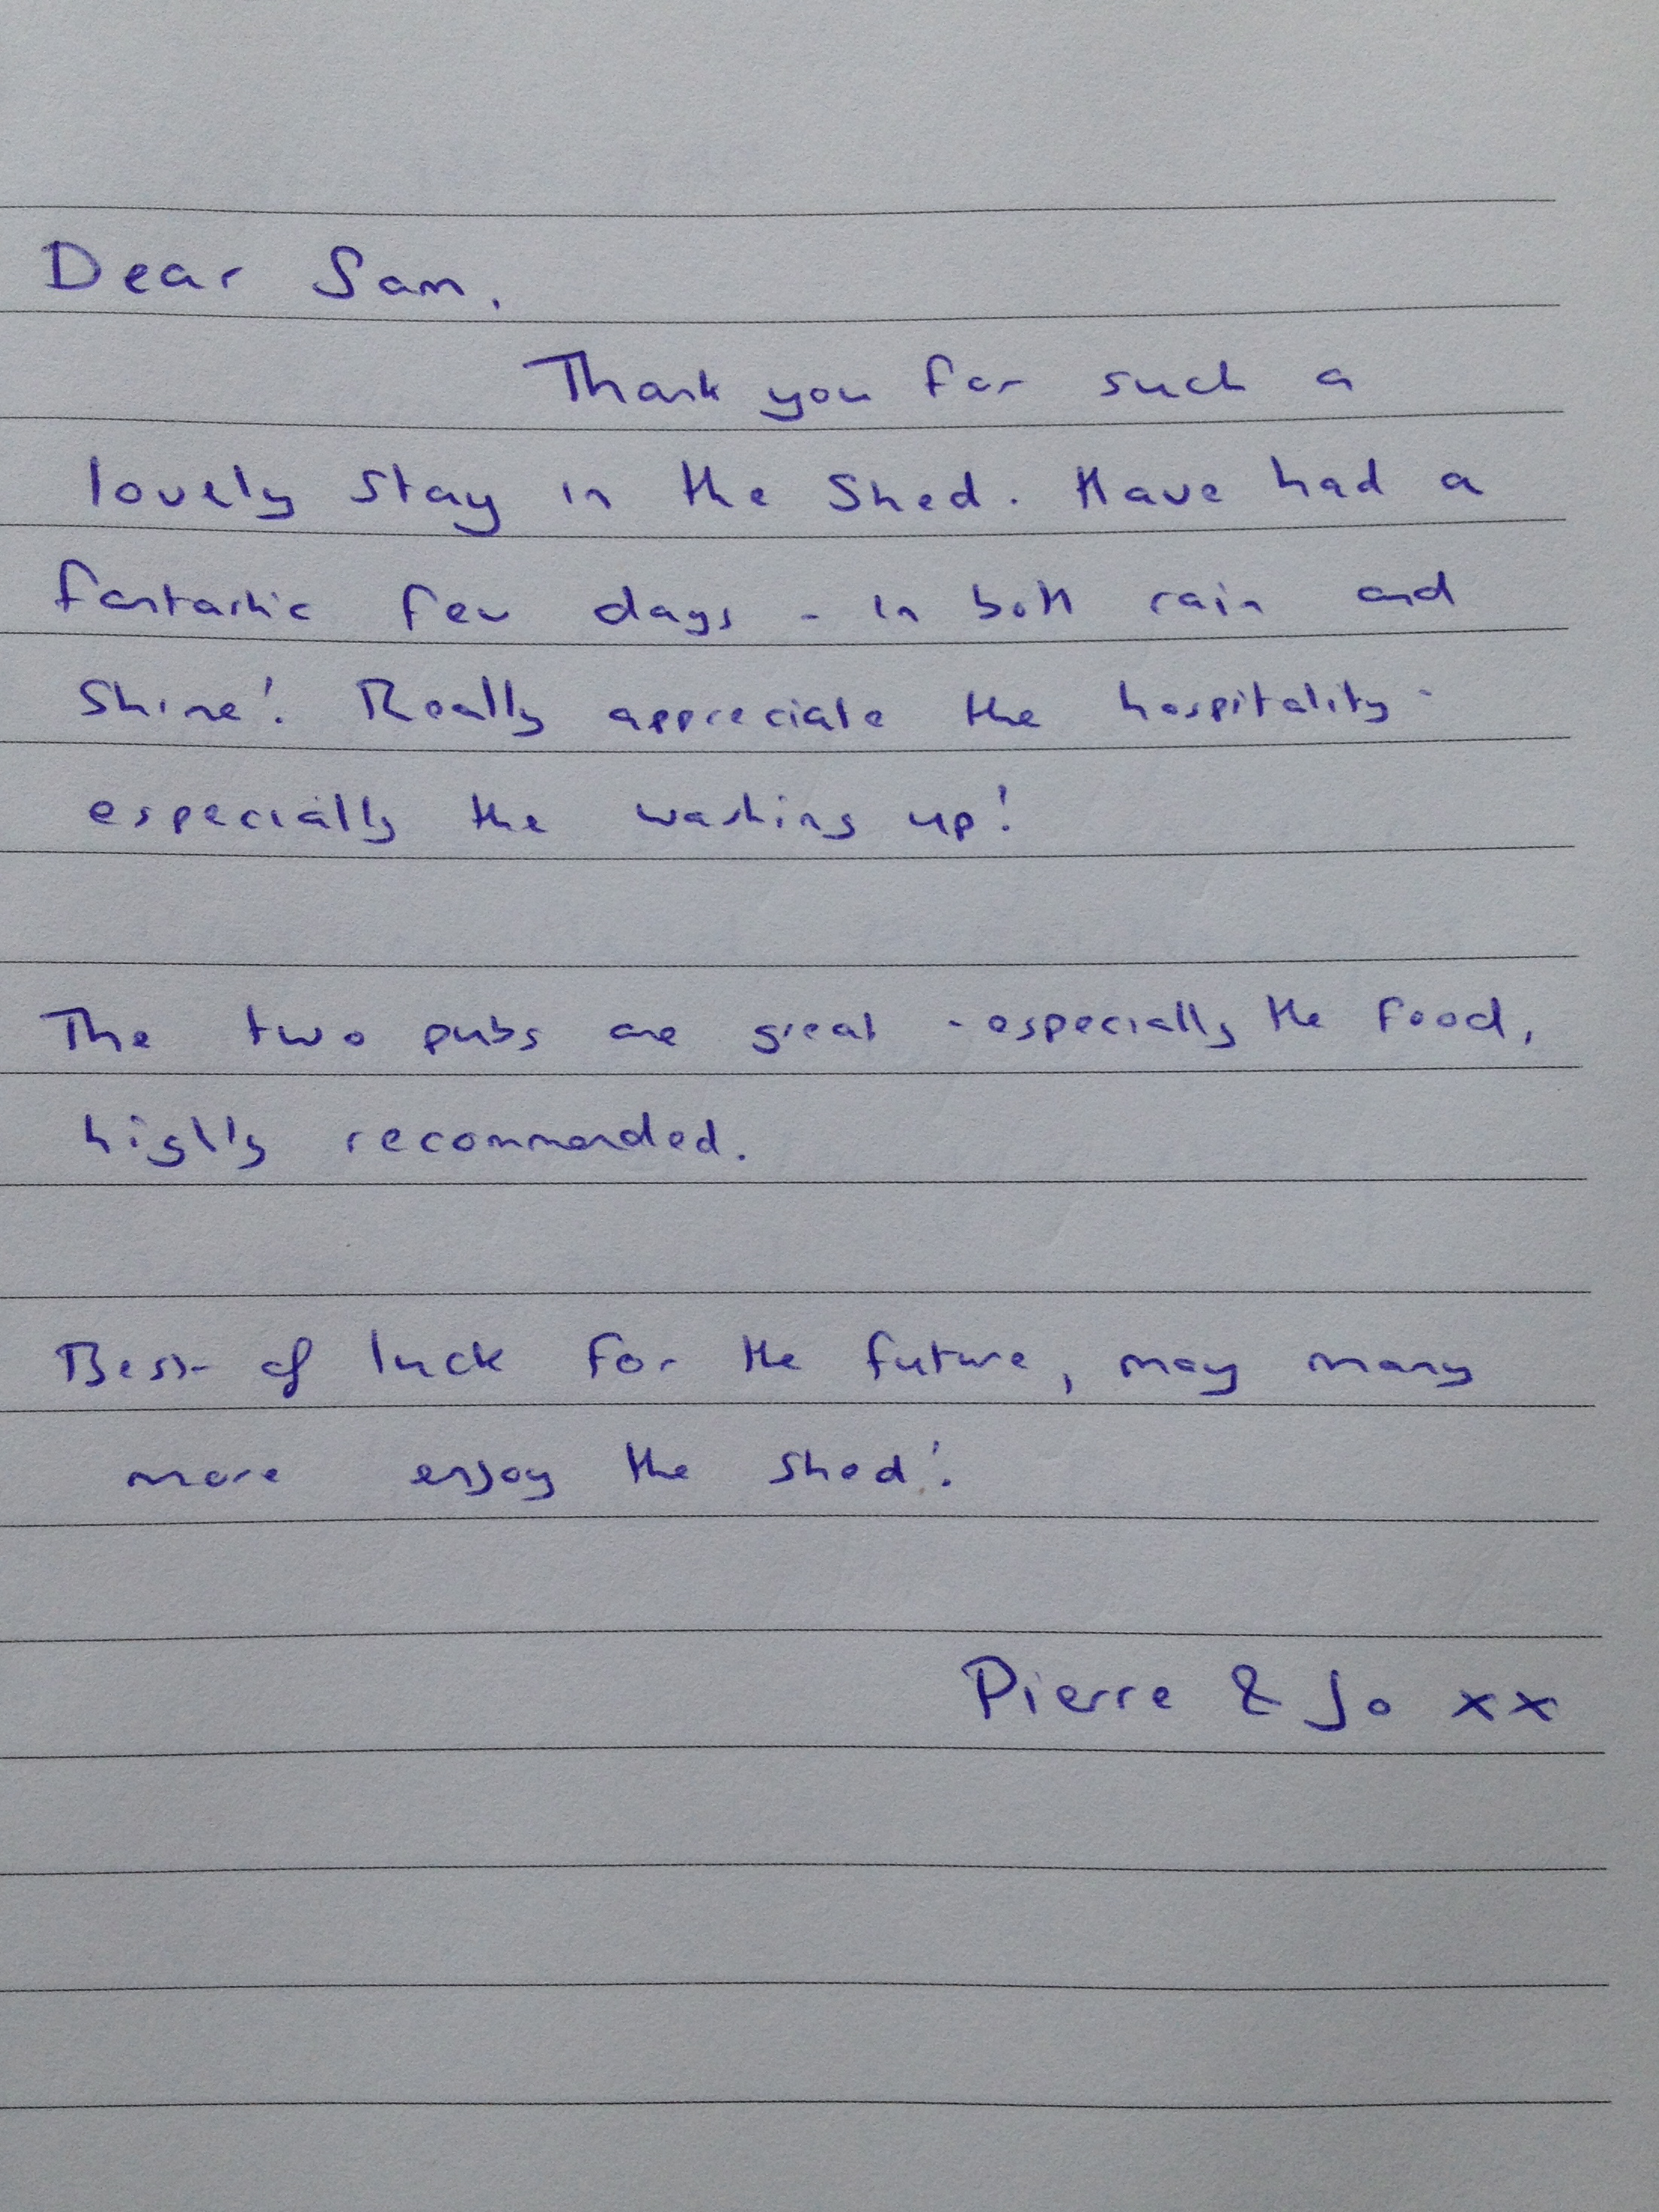 Dear Sam,
Thank you for such a
lovely stay in the Shed. Have had a
fantastic few days - in both rain and
shine! Really appreciate the hospitality -
especially the washing up!
The two pubs are great - especially the food,
highly recommended.
Best of luck for the future, may many
more enjoy the shed!
Pierre & Jo xx